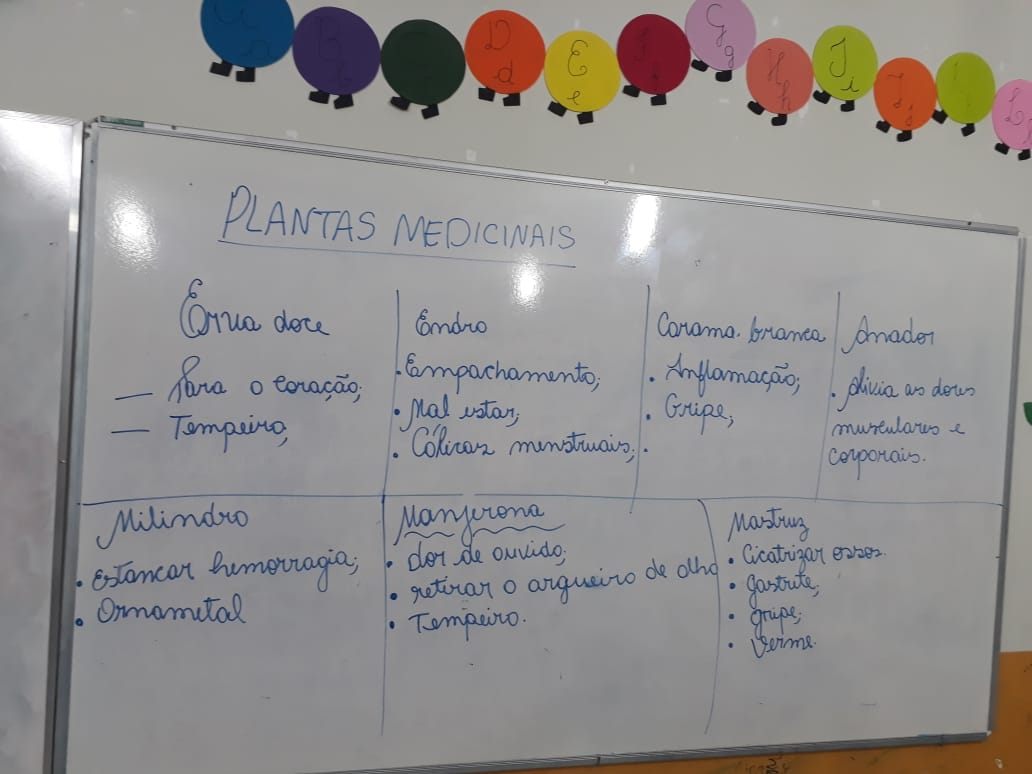 A
B
D d
E e
G g
H h
I i
J j
L
PLANTAS MEDICINAIS
Erva doce
— Para o coração;
— Tempeiro;
Endro
• Empachamento;
• Mal estar;
• Cólicas menstruais;
Carama. branca
• Inflamação;
• Gripe;
•
Anador
• Alivia as dores
musculares e
corporais.
Milindro
• Estancar hemorragia;
• Ornametal
Manjerona
• Dor de ouvido;
• retirar o argueiro de olho
• Tempeiro.
Mastruz
• Cicatrizar ossos.
• Gastrite;
• gripe;
• Verme.